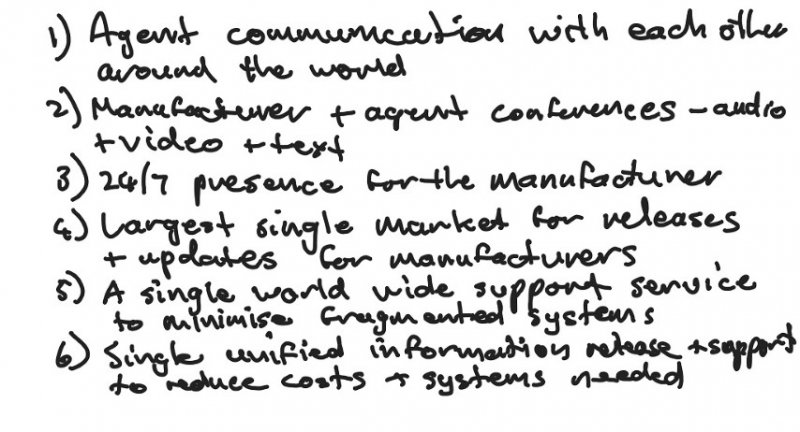 1) Agent communication with each other
around the world
2) Manufacturer + agent conferences - audio
+ video + text
3) 24/7 presence for the manufacturer
4) Largest single market for releases
+ updates for manufacturers
5) A single world wide support service
to minimise fragmented systems
6) Single unified information release + support
to reduce costs + systems needed